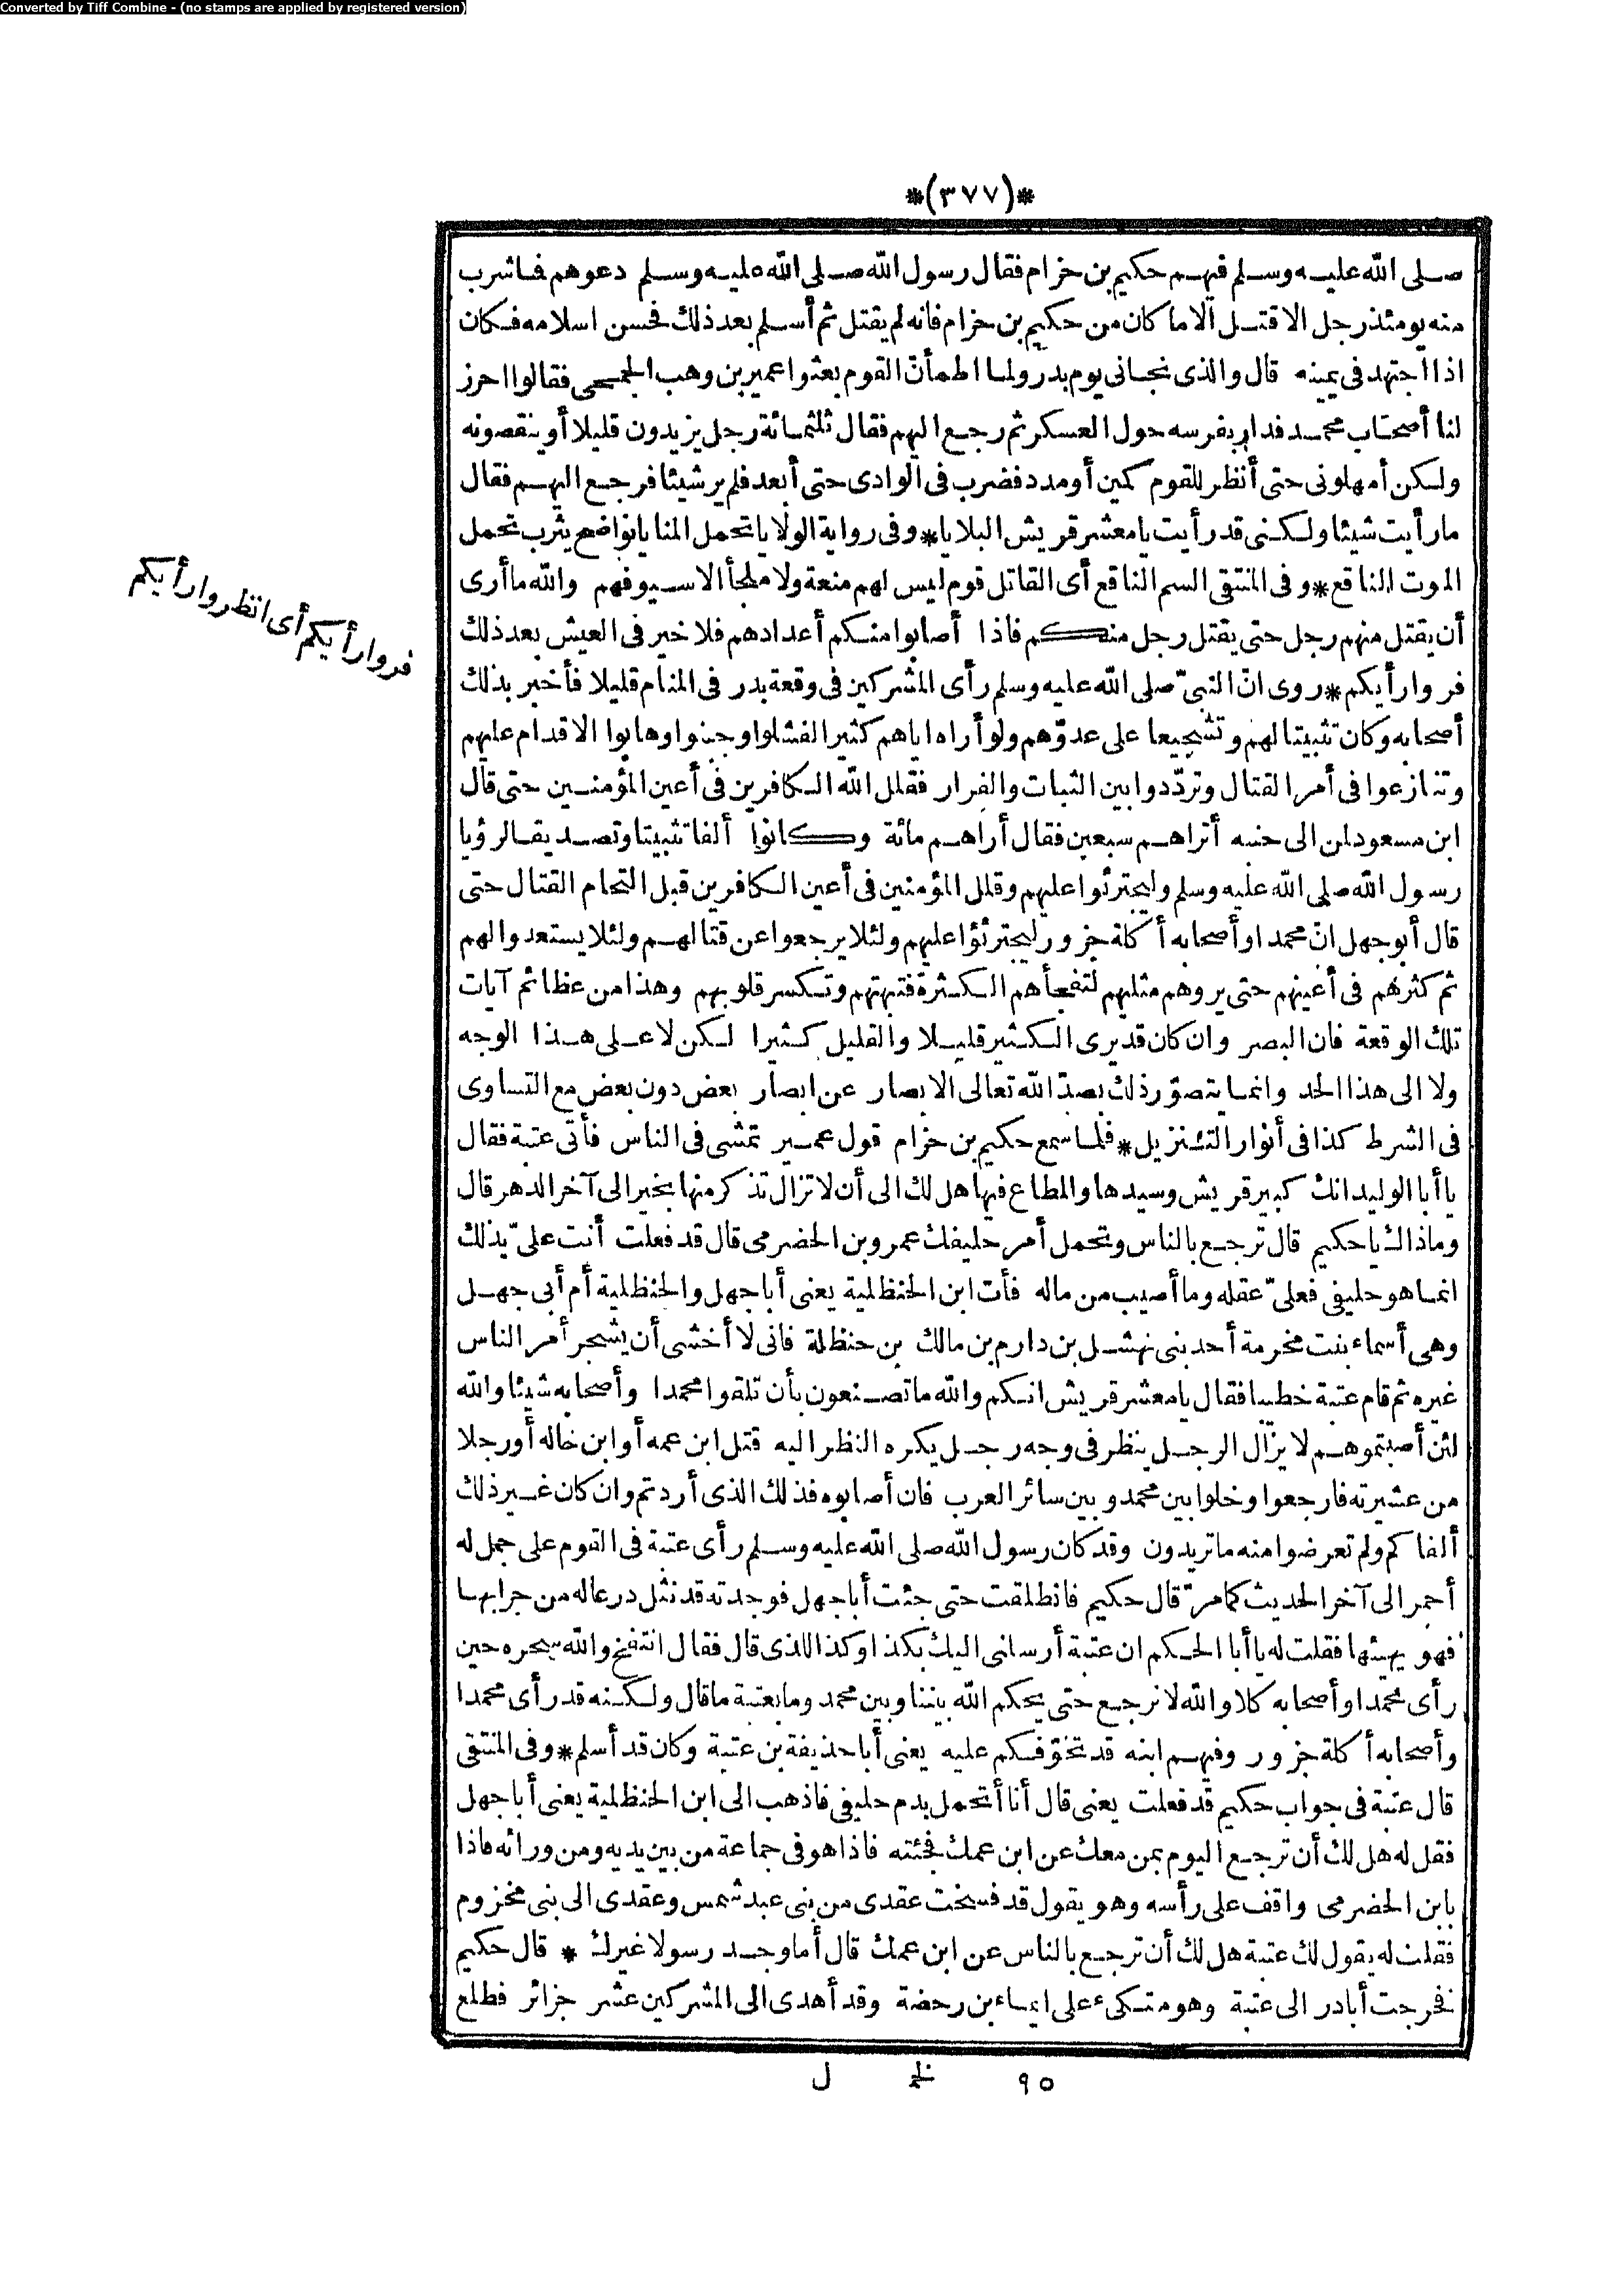 Converted by Tiff Combine - (no stamps are applied by registered version)
*(٣٧٧)*
صلى الله عليه وسلم فيهم حكيم بن حزام فقال رسول الله صلى الله عليه وسلم دعوهم فما شرب
منه يومئذ رجل الا قتل الا ما كان من حكيم بن حزام فانه لم يقتل ثم أسلم بعد ذلك فحسن اسلامه فكان
اذا اجتهد فى يمينه قال والذى نجانى يوم بدر ولما اطمأنّ القوم بعثوا عمير بن وهب الجمحى فقالوا احرز
لنا أصحاب محمد فدار بفرسه حول العسكر ثم رجع اليهم فقال ثلثمائة رجل يزيدون قليلا أو ينقصونه
ولكن أمهلونى حتى أنظر للقوم كمين أو مدد فضرب فى الوادى حتى أبعد فلم ير شيئا فرجع اليهم فقال
ما رأيت شيئا ولكنى قد رأيت يا معشر قريش البلايا* وفى رواية الولايا تحمل المنايا نواضح يثرب تحمل
الموت الناقع* وفى المنتقى السم الناقع أى القاتل قوم ليس لهم منعة ولا ملجأ الا سيوفهم والله ما أرى
أن يقتل منهم رجل حتى يقتل رجل منكم فاذا أصابوا منكم أعدادهم فلا خير فى العيش بعد ذلك
فروا رأيكم* روى انّ النبىّ صلى الله عليه وسلم رأى المشركين فى وقعة بدر فى المنام قليلا فأخبر بذلك
أصحابه وكان تثبيتا لهم وتشجيعا على عدوّهم ولو أراه اياهم كثيرا لفشلوا وجبنوا وهابوا الاقدام عليهم
وتنازعوا فى أمر القتال وتردّدوا بين الثبات والفرار فقلل الله الكافرين فى أعين المؤمنين حتى قال
ابن مسعود لمن الى جنبه أتراهم سبعين فقال أراهم مائة وكانوا ألفا تثبيتا وتصديقا لرؤيا
رسول الله صلى الله عليه وسلم وليجترئوا عليهم وقلل المؤمنين فى أعين الكافرين قبل التحام القتال حتى
قال أبو جهل انّ محمدا وأصحابه أكلة جزور ليجترئوا عليهم ولئلا يرجعوا عن قتالهم ولئلا يستعدوا لهم
ثم كثرهم فى أعينهم حتى يروهم مثليهم لتفجأهم الكثرة فتبهتهم وتكسر قلوبهم وهذا من عظائم آيات
تلك الوقعة فان البصر وان كان قد يرى الكثير قليلا والقليل كثيرا لكن لا على هذا الوجه
ولا الى هذا الحد وانما يتصوّر ذلك بصدّ الله تعالى الابصار عن ابصار بعض دون بعض مع التساوى
فى الشرط كذا فى أنوار التنزيل* فلما سمع حكيم بن حزام قول عمير تمشى فى الناس فأتى عتبة فقال
يا أبا الوليد انك كبير قريش وسيدها والمطاع فيها هل لك الى أن لا تزال تذكر منها بخير الى آخر الدهر قال
وماذاك يا حكيم قال ترجع بالناس وتحمل أمر حليفك عمرو بن الحضرمى قال قد فعلت أنت علىّ بذلك
انما هو حليفى فعلىّ عقله وما أصيب من ماله فأت ابن الحنظلية يعنى أبا جهل والحنظلية أم أبى جهل
وهى أسماء بنت مخرمة أحد بنى نهشل بن دارم بن مالك بن حنظلة فانى لا أخشى أن يشجر أمر الناس
غيره ثم قام عتبة خطيبا فقال يا معشر قريش انكم والله ما تصنعون بأن تلقوا محمدا وأصحابه شيئا والله
لئن أصبتموهم لا يزال الرجل ينظر فى وجه رجل يكره النظر اليه قتل ابن عمه أو ابن خاله أو رجلا
من عشيرته فارجعوا وخلوا بين محمد وبين سائر العرب فان أصابوه فذلك الذى أردتم وان كان غير ذلك
ألفاكم ولم تعرضوا منه ما تريدون وقد كان رسول الله صلى الله عليه وسلم رأى عتبة فى القوم على جمل له
أحمر الى آخر الحديث كما مرّ قال حكيم فانطلقت حتى جئت أبا جهل فوجدته قد نثل درعا له من جرابها
فهو يهيئها فقلت له يا أبا الحكم ان عتبة أرسلنى اليك بكذا وكذا للذى قال فقال انتفخ والله سحره حين
رأى محمدا وأصحابه كلا والله لا نرجع حتى يحكم الله بيننا وبين محمد وما بعتبة ما قال ولكنه قد رأى محمدا
وأصحابه أكلة جزور وفيهم ابنه قد تخوّفكم عليه يعنى أبا حذيفة بن عتبة وكان قد أسلم* وفى المنتقى
قال عتبة فى جواب حكيم قد فعلت يعنى قال أنا أتحمل بدم حليفى فاذهب الى ابن الحنظلية يعنى أبا جهل
فقل له هل لك أن ترجع اليوم بمن معك عن ابن عمك فجئته فاذا هو فى جماعة من بين يديه ومن ورائه فاذا
بابن الحضرمى واقف على رأسه وهو يقول قد فسخت عقدى من بنى عبد شمس وعقدى الى بنى مخزوم
فقلت له يقول لك عتبة هل لك أن ترجع بالناس عن ابن عمك قال أما وجد رسولا غيرك * قال حكيم
فخرجت أبادر الى عتبة وهو متكىء على ايماء بن رحضة وقد أهدى الى المشركين عشر جزائر فطلع
فروا رأيكم أى انظروا رأيكم
٩٥ خ ل